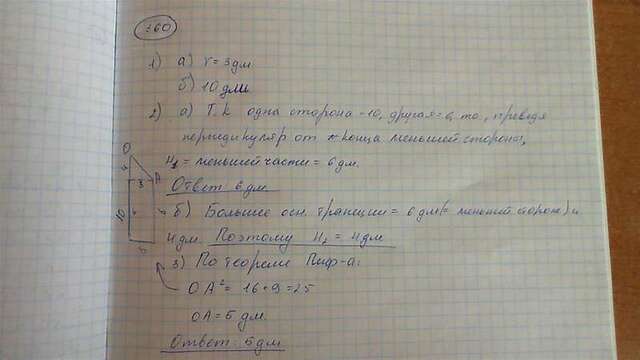 360
1) а) r = 3 дм
б) 10 дм
2) а) Т.к одна сторона - 10, другая = 6, то, проведя
перпендикуляр от конца меньшей стороны,
H₁ = меньшей части = 6 дм.
Ответ 6 дм
б) Большее осн. трапеции = 6 дм (= меньшей стороне) и
4 дм. Поэтому H₂ = 4 дм
3) По теореме Пиф-а:
OA² = 16 + 9 = 25
OA = 5 дм.
Ответ: 5 дм
O
4
3
A
10